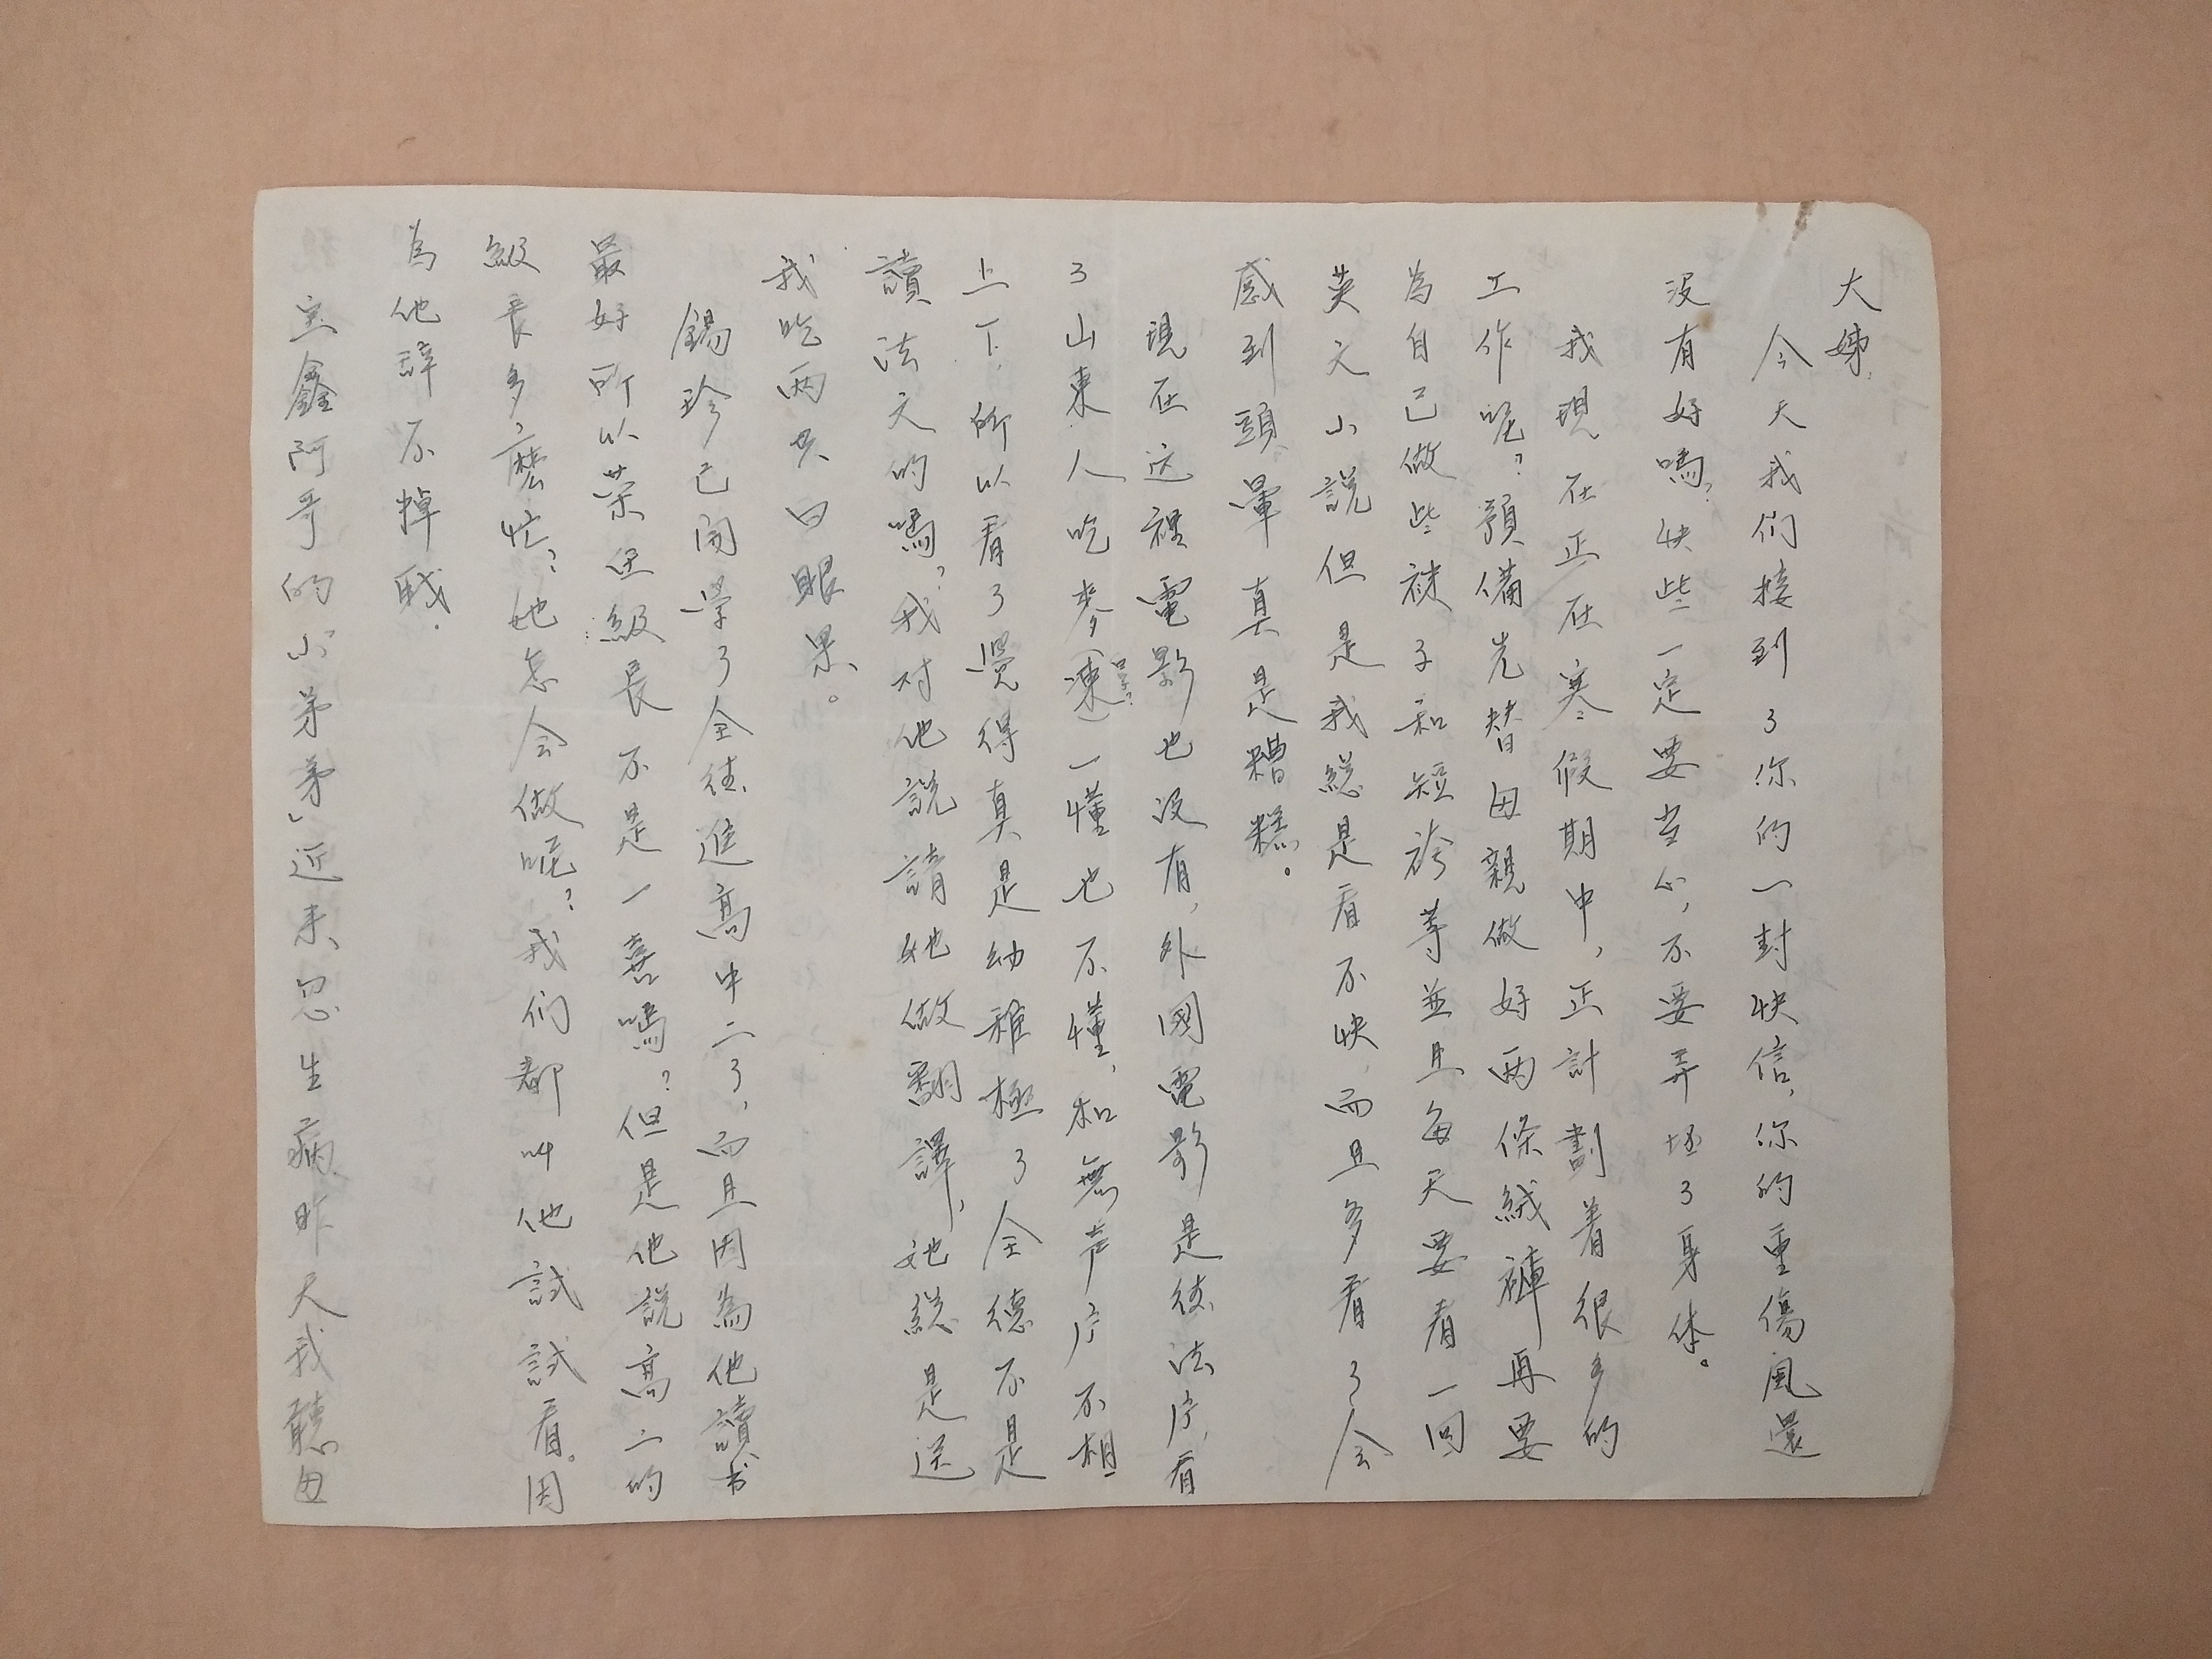 大姊,
今天我们接到了你的一封快信,你的重傷風還
没有好嗎?快些一定要当心,不要弄坯了身体。
我現在正在寒假期中,正計劃着很多的
工作呢?預備先替母親做好两條絨褲再要
為自己做些襪子和短袴等並且每天要看一回
英文小説但是我総是看不快,而且多看了会
感到頭暈真是糟糕。
現在这裡電影也没有,外國電影是德法片,看
了山東人吃麥(凍)一懂也不懂,和無声片不相
上下,所以看了覺得真是幼稚極了全德不是
讀法文的嗎?我对他説請她做翻譯,她総是送
我吃两只白眼果。
錫珍已開學了全德進高中二了,而且因為他讀书
最好所以荣任級長不是一喜嗎?但是他説高二的
級長多麽忙?她怎会做呢?我们都叫他試試看。因
為他辞不掉哦.
宝鑫阿哥的小"茅茅"近来忽生病昨天我聽母